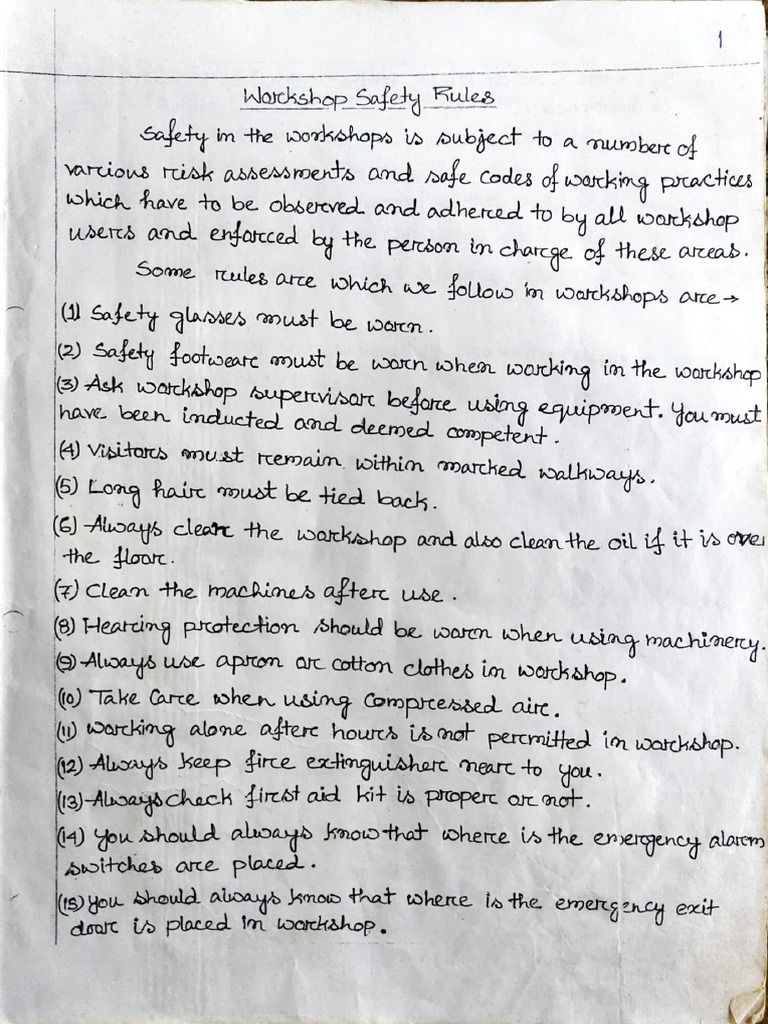 1
Workshop Safety Rules
Safety in the workshops is subject to a number of
various risk assessments and safe codes of working practices
which have to be observed and adhered to by all workshop
users and enforced by the person in charge of these areas.
Some rules are which we follow in workshops are →
(1) Safety glasses must be worn.
(2) Safety footwear must be worn when working in the workshop
(3) Ask workshop supervisor before using equipment. You must
have been inducted and deemed competent.
(4) Visitors must remain within marked walkways.
(5) Long hair must be tied back.
(6) Always clean the workshop and also clean the oil if it is over
the floor.
(7) Clean the machines after use.
(8) Hearing protection should be worn when using machinery.
(9) Always use apron or cotton clothes in workshop.
(10) Take care when using compressed air.
(11) Working alone after hours is not permitted in workshop.
(12) Always keep fire extinguisher near to you.
(13) Always check first aid kit is proper or not.
(14) You should always know that where is the emergency alarm
switches are placed.
(15) You should always know that where is the emergency exit
door is placed in workshop.